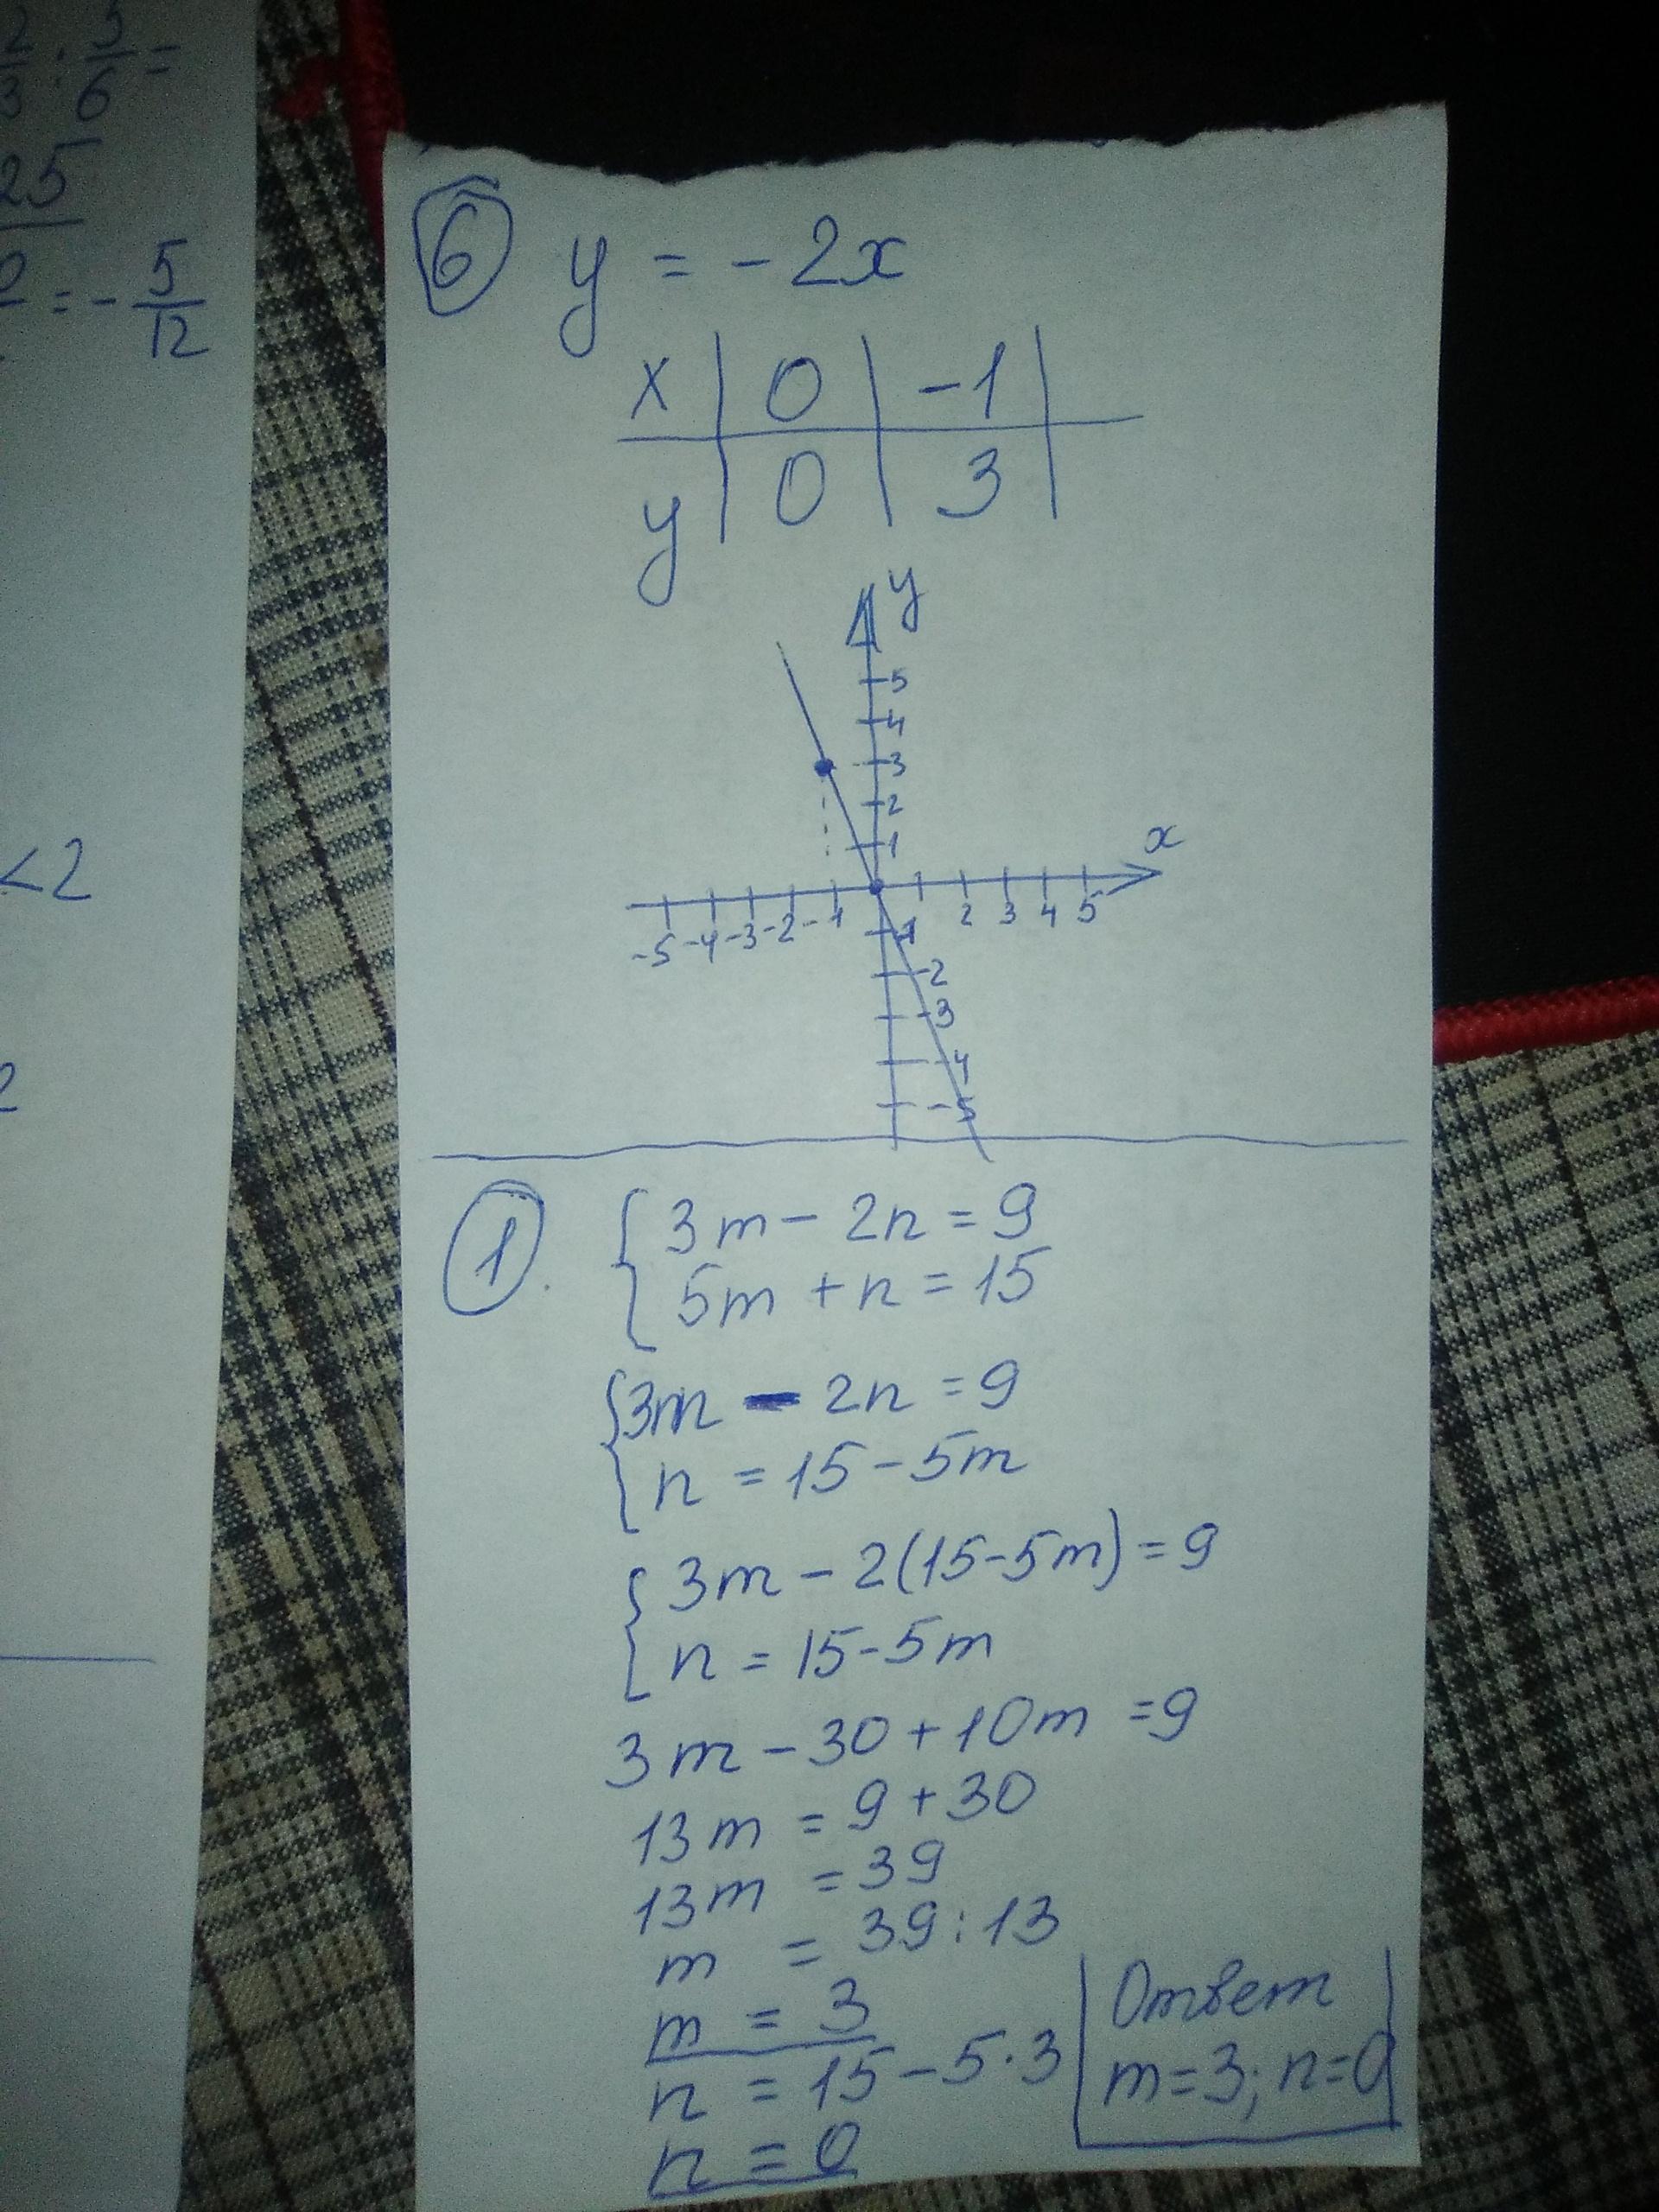 2/3 : 5/6 =
25
= - 5/12
< 2
2
6 y = - 2x
x | 0 | -1 |
y | 0 | 3 |
y
5
4
3
2
1
x
-5 -4 -3 -2 -1 1 2 3 4 5
-2
-3
-4
-5
1. { 3m - 2n = 9
5m + n = 15
{ 3m - 2n = 9
n = 15 - 5m
{ 3m - 2(15 - 5m) = 9
n = 15 - 5m
3m - 30 + 10m = 9
13m = 9 + 30
13m = 39
m = 39 : 13
m = 3
n = 15 - 5 · 3
n = 0
Ответ
m = 3; n = 0